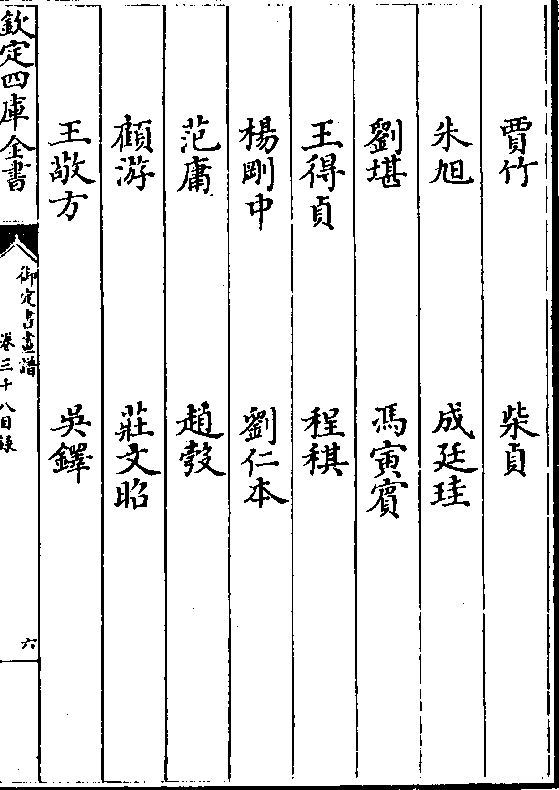 賈竹 柴貞
朱旭 成廷珪
劉堪 馮寅賓
王得貞 程稘
楊剛中 劉仁本
范庸 趙彀
顧游 莊文昭
王敬方 吳鐸
欽定四庫全書 御定書畫譜 卷三十八目錄 六